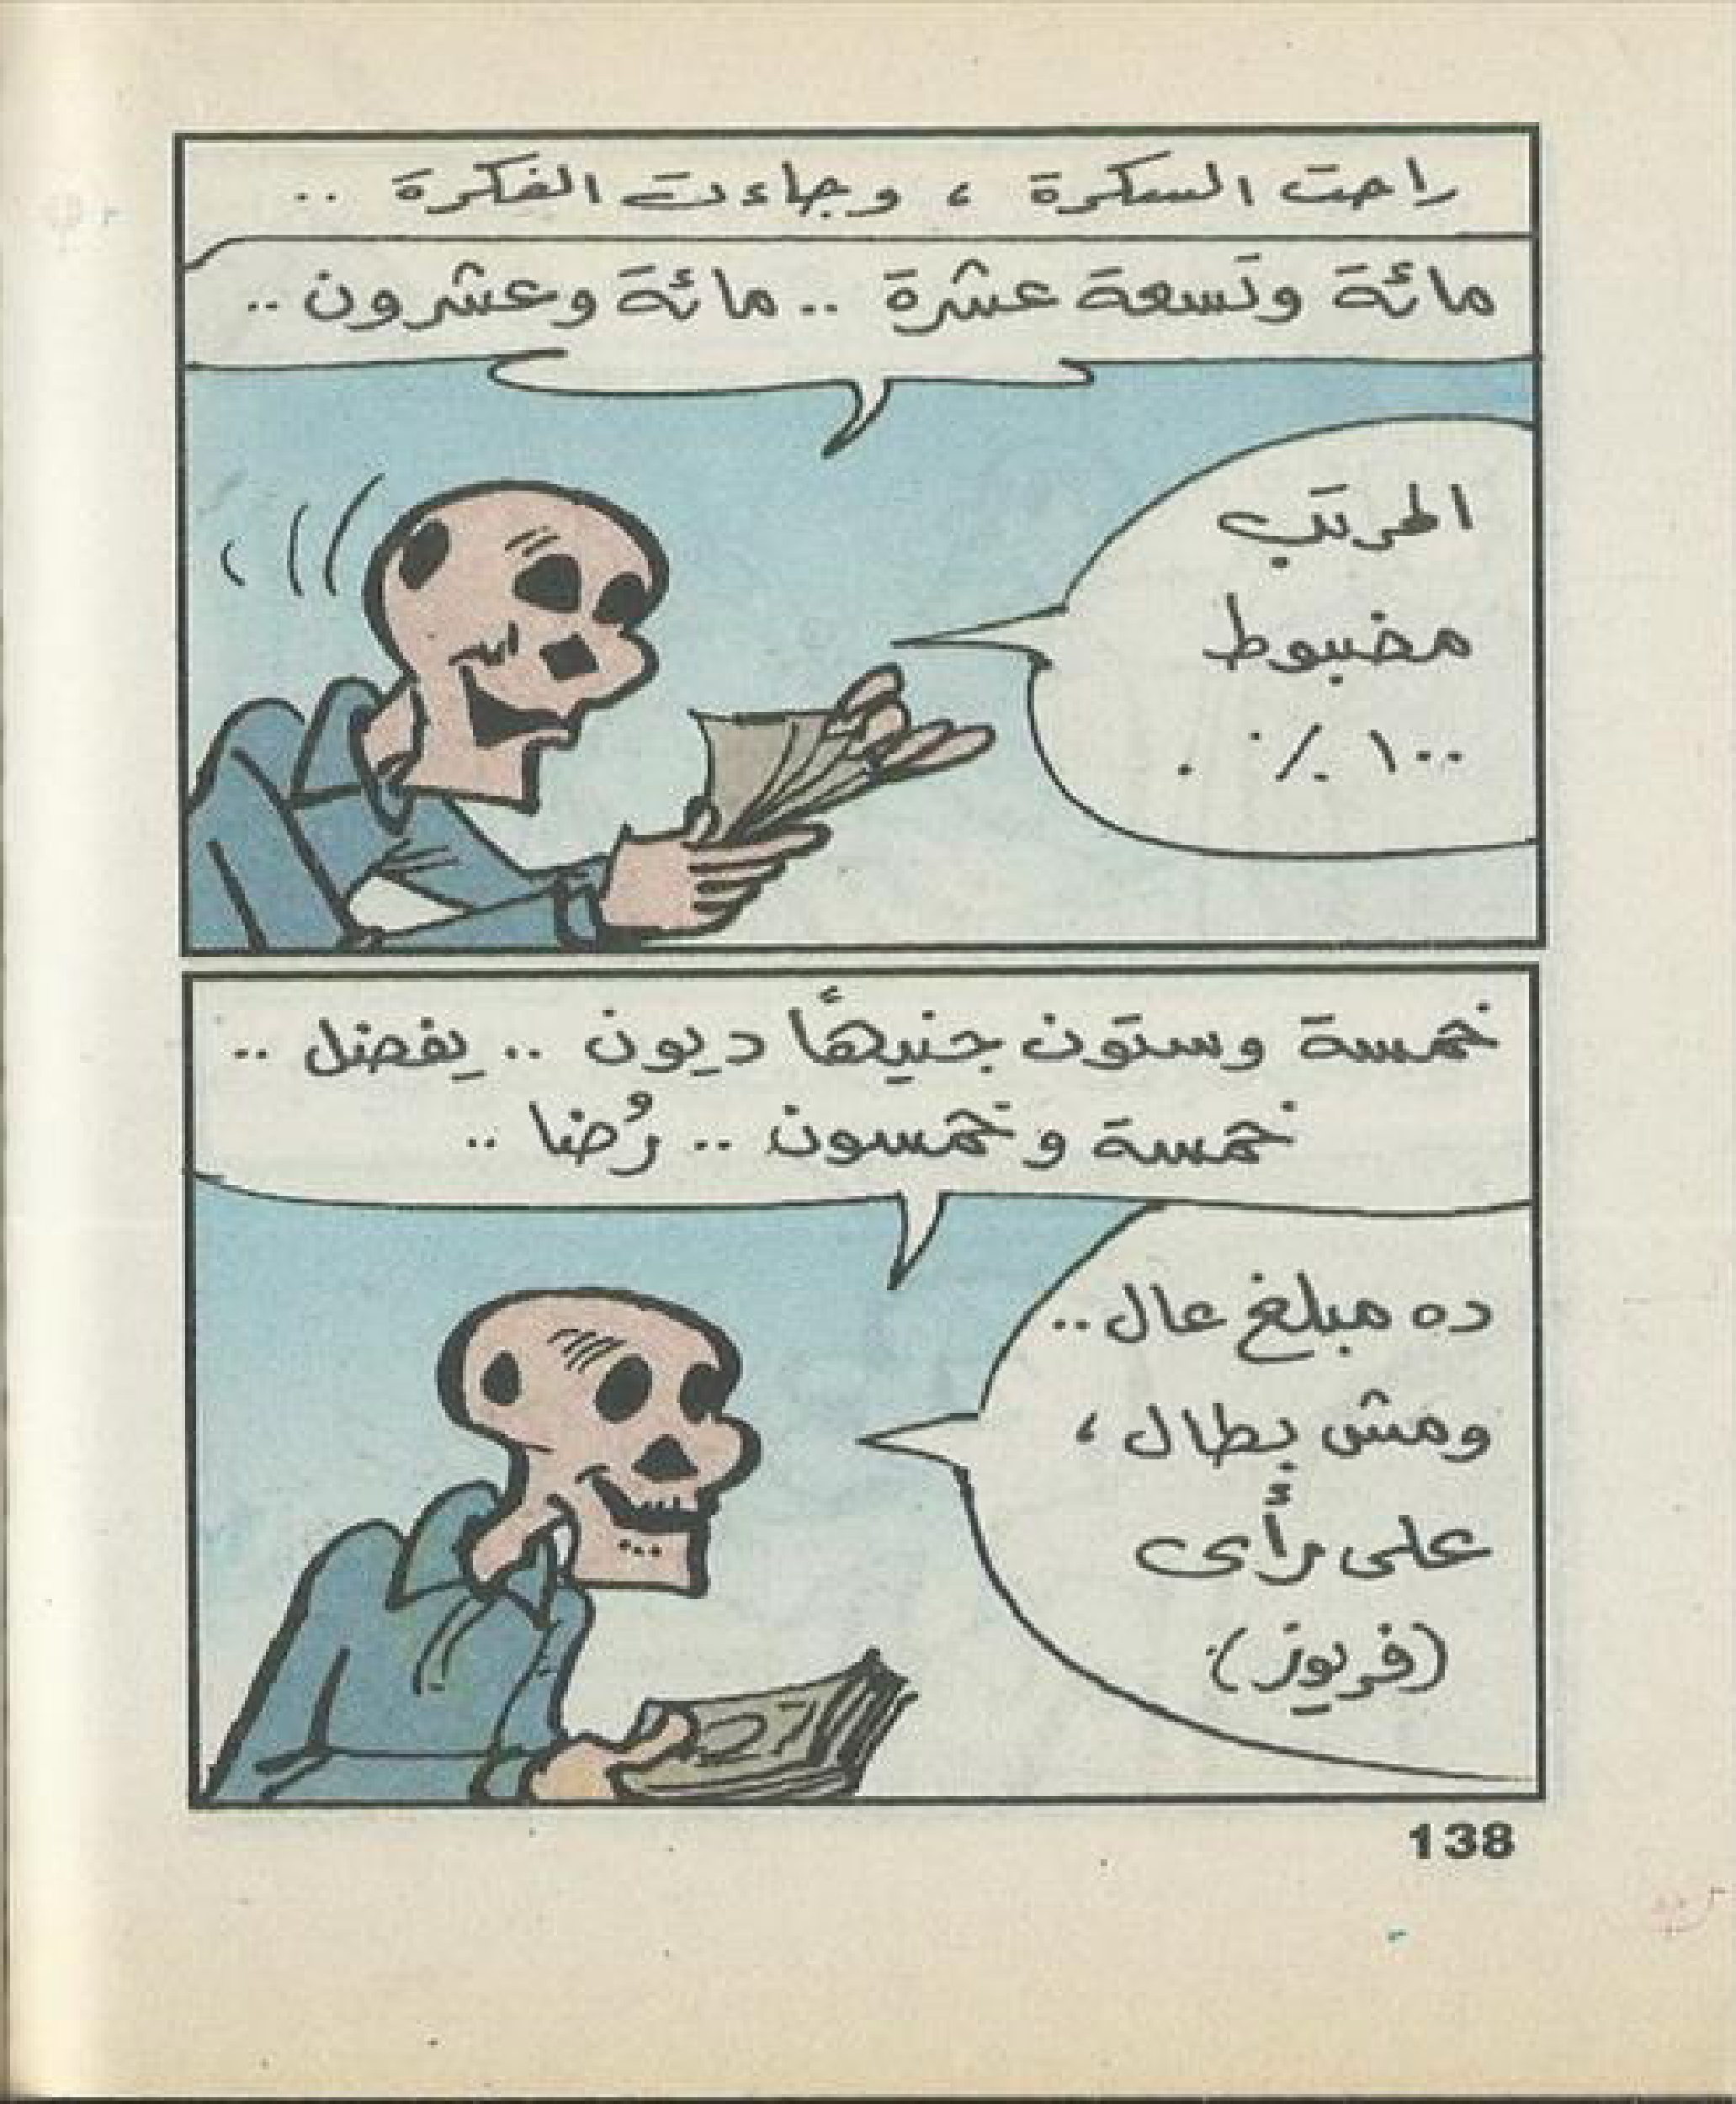 راحت السكرة ، وجاءت الفكرة ..
مائة وتسعة عشرة .. مائة وعشرون ..
المرتب
مضبوط
١٠٠ ٪ .
خمسة وستون جنيهاً ديون .. يفضل ..
خمسة وخمسون .. رُضا ..
ده مبلغ عال ..
ومش بطال ،
على رأى
(فريوز)
138